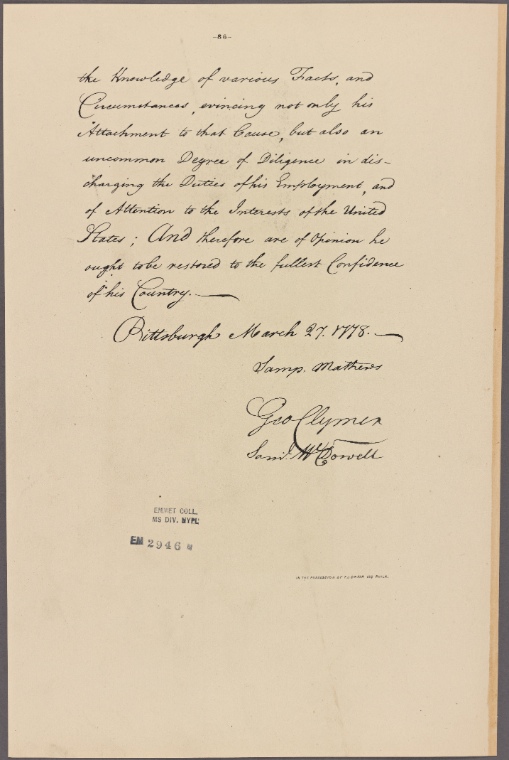 -86-
the Knowledge of various Facts, and
Circumstances, evincing not only his
Attachment to that Cause, but also an
uncommon Degree of Diligence in dis-
charging the Duties of his Employment, and
of Attention to the Interests of the United
States; And therefore are of Opinion he
ought to be restored to the fullest Confidence
of his Country.—
Pittsburgh March 27. 1778.—
Samp. Mathews
Geo Clymer
Saml. McDowell
EMMET COLL.
MS DIV. NYPL
EM 2946
IN THE POSSESSION OF